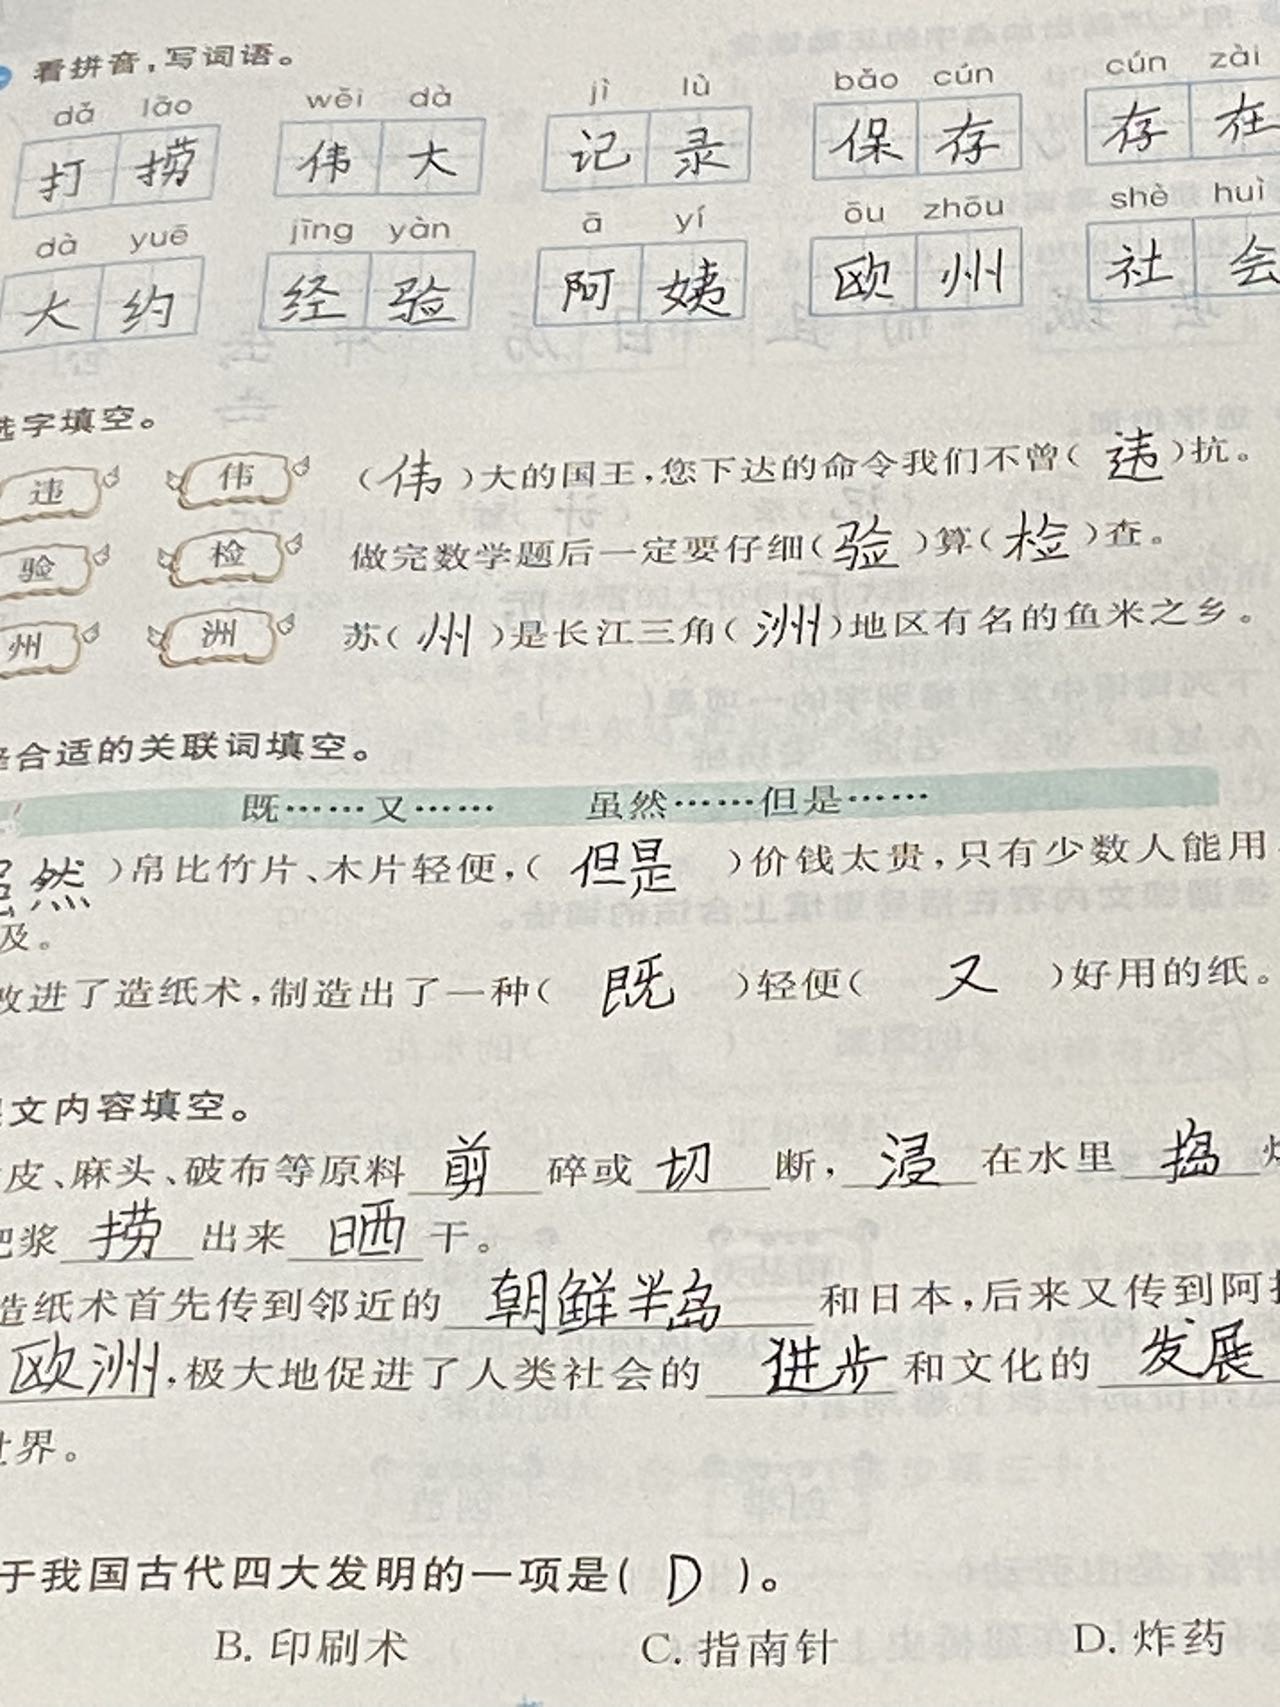 看拼音，写词语。
dǎ lāo wěi dà jì lù bǎo cún cún zài
打捞 伟大 记录 保存 存在
dà yuē jīng yàn ā yí ōu zhōu shè huì
大约 经验 阿姨 欧州 社会
选字填空。
违 伟 （伟）大的国王，您下达的命令我们不曾（违）抗。
验 检 做完数学题后一定要仔细（验）算（检）查。
州 洲 苏（州）是长江三角（洲）地区有名的鱼米之乡。
合适的关联词填空。
既……又…… 虽然……但是……
虽然）帛比竹片、木片轻便，（但是）价钱太贵，只有少数人能用
及。
改进了造纸术，制造出了一种（既）轻便（又）好用的纸。
课文内容填空。
皮、麻头、破布等原料剪碎或切断，浸在水里捣
把浆捞出来晒干。
造纸术首先传到邻近的朝鲜半岛和日本，后来又传到阿拉
欧洲，极大地促进了人类社会的进步和文化的发展
世界。
于我国古代四大发明的一项是（D）。
B. 印刷术 C. 指南针 D. 炸药